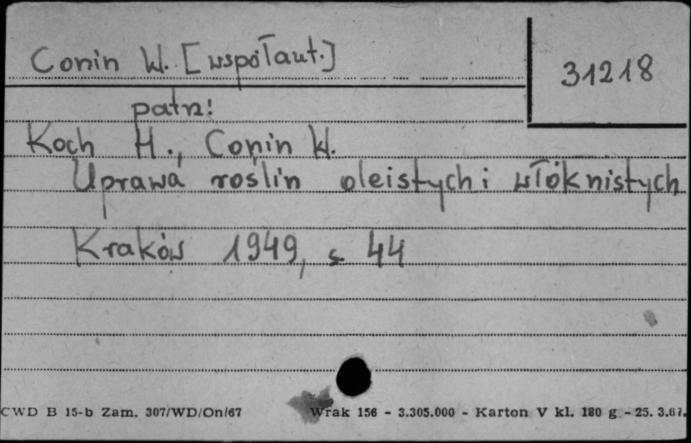 Conin W. [współaut.]
31218
patrz!
Koch H., Conin W.
Uprawa roślin oleistych i włóknistych
Kraków 1949, s. 44
CWD B 15-b Zam. 307/WD/On/67 Wrak 156 - 3.305.000 - Karton V kl. 180 g - 25. 3.67.